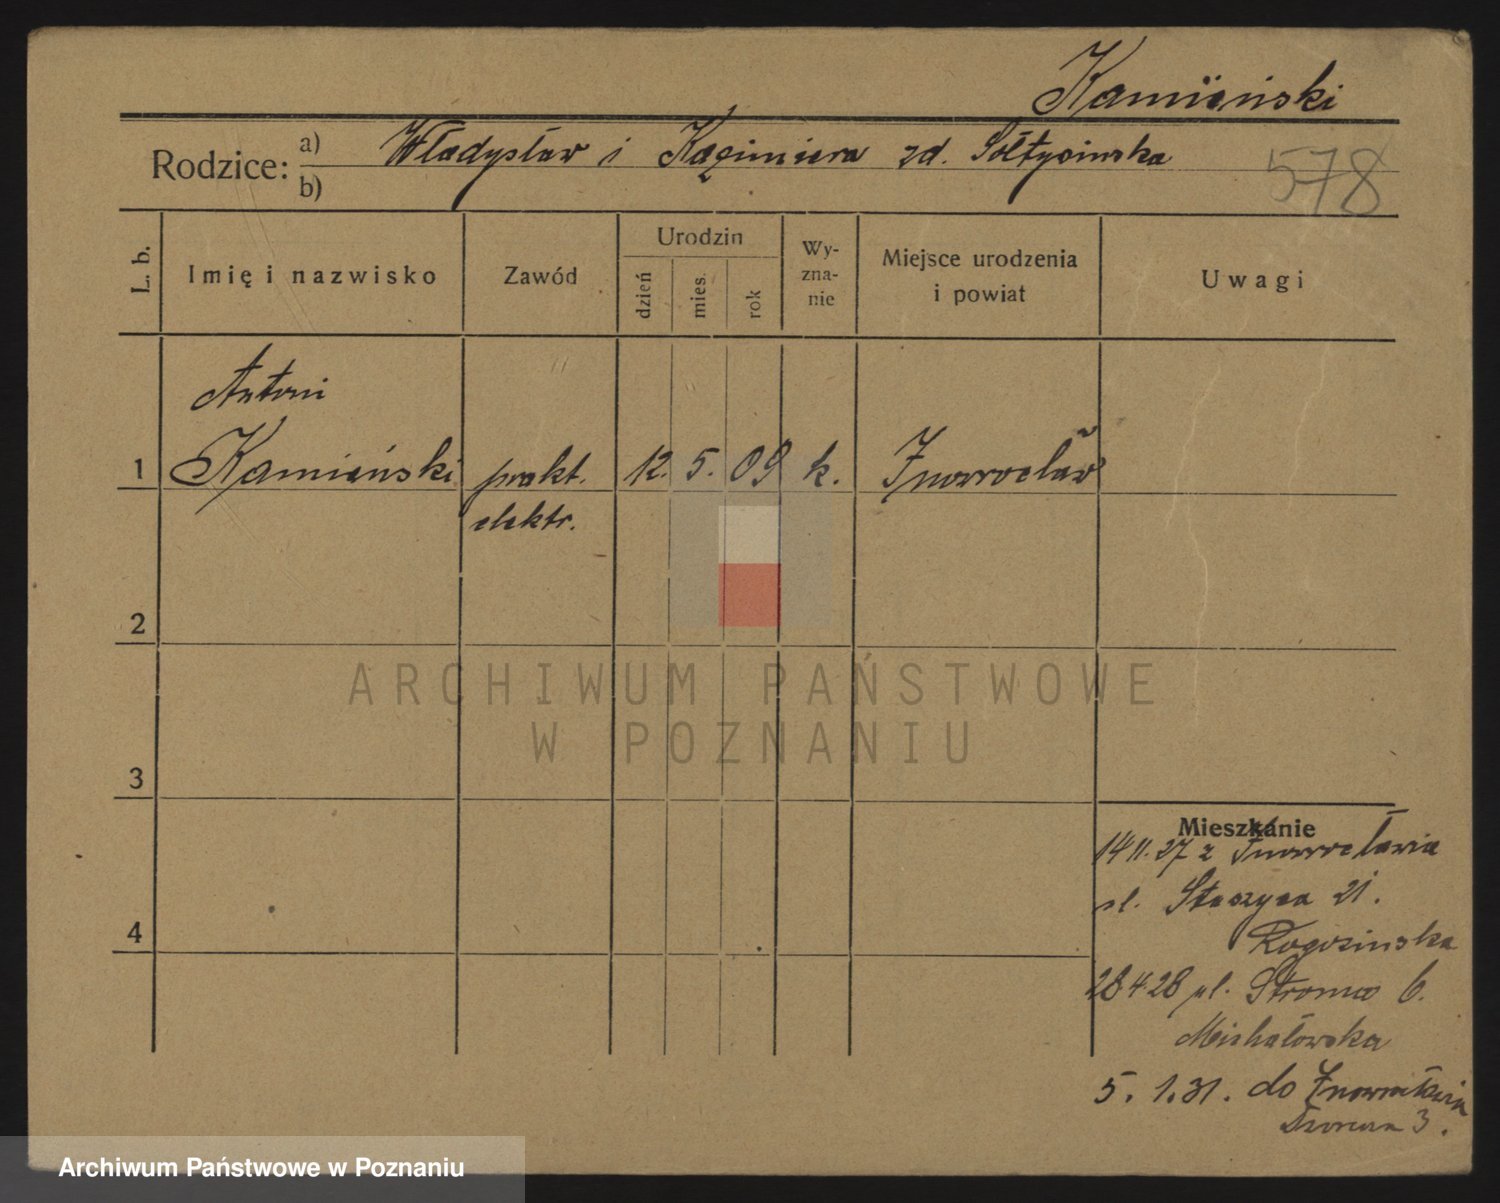 Kamieński
Rodzice: a) Władysław i Kazimiera zd. Sołtysinska
b)
578
L. b.
Imię i nazwisko
Zawód
Urodzin
dzień
mies.
rok
Wy-
zna-
nie
Miejsce urodzenia
i powiat
Uwagi
Antoni
1 Kamieński prakt. 12. 5. 09 k. Inowrocław
elektr.
2
ARCHIWUM PAŃSTWOWE
W POZNANIU
3
Mieszkanie
14 11. 27 z Inowrocławia
ul. Staszyca 21.
Rogozinska
4
28 4 28 ul. Stroma 6.
Michałowska
5. 1. 31. do Inowrocławia
3.
Archiwum Państwowe w Poznaniu